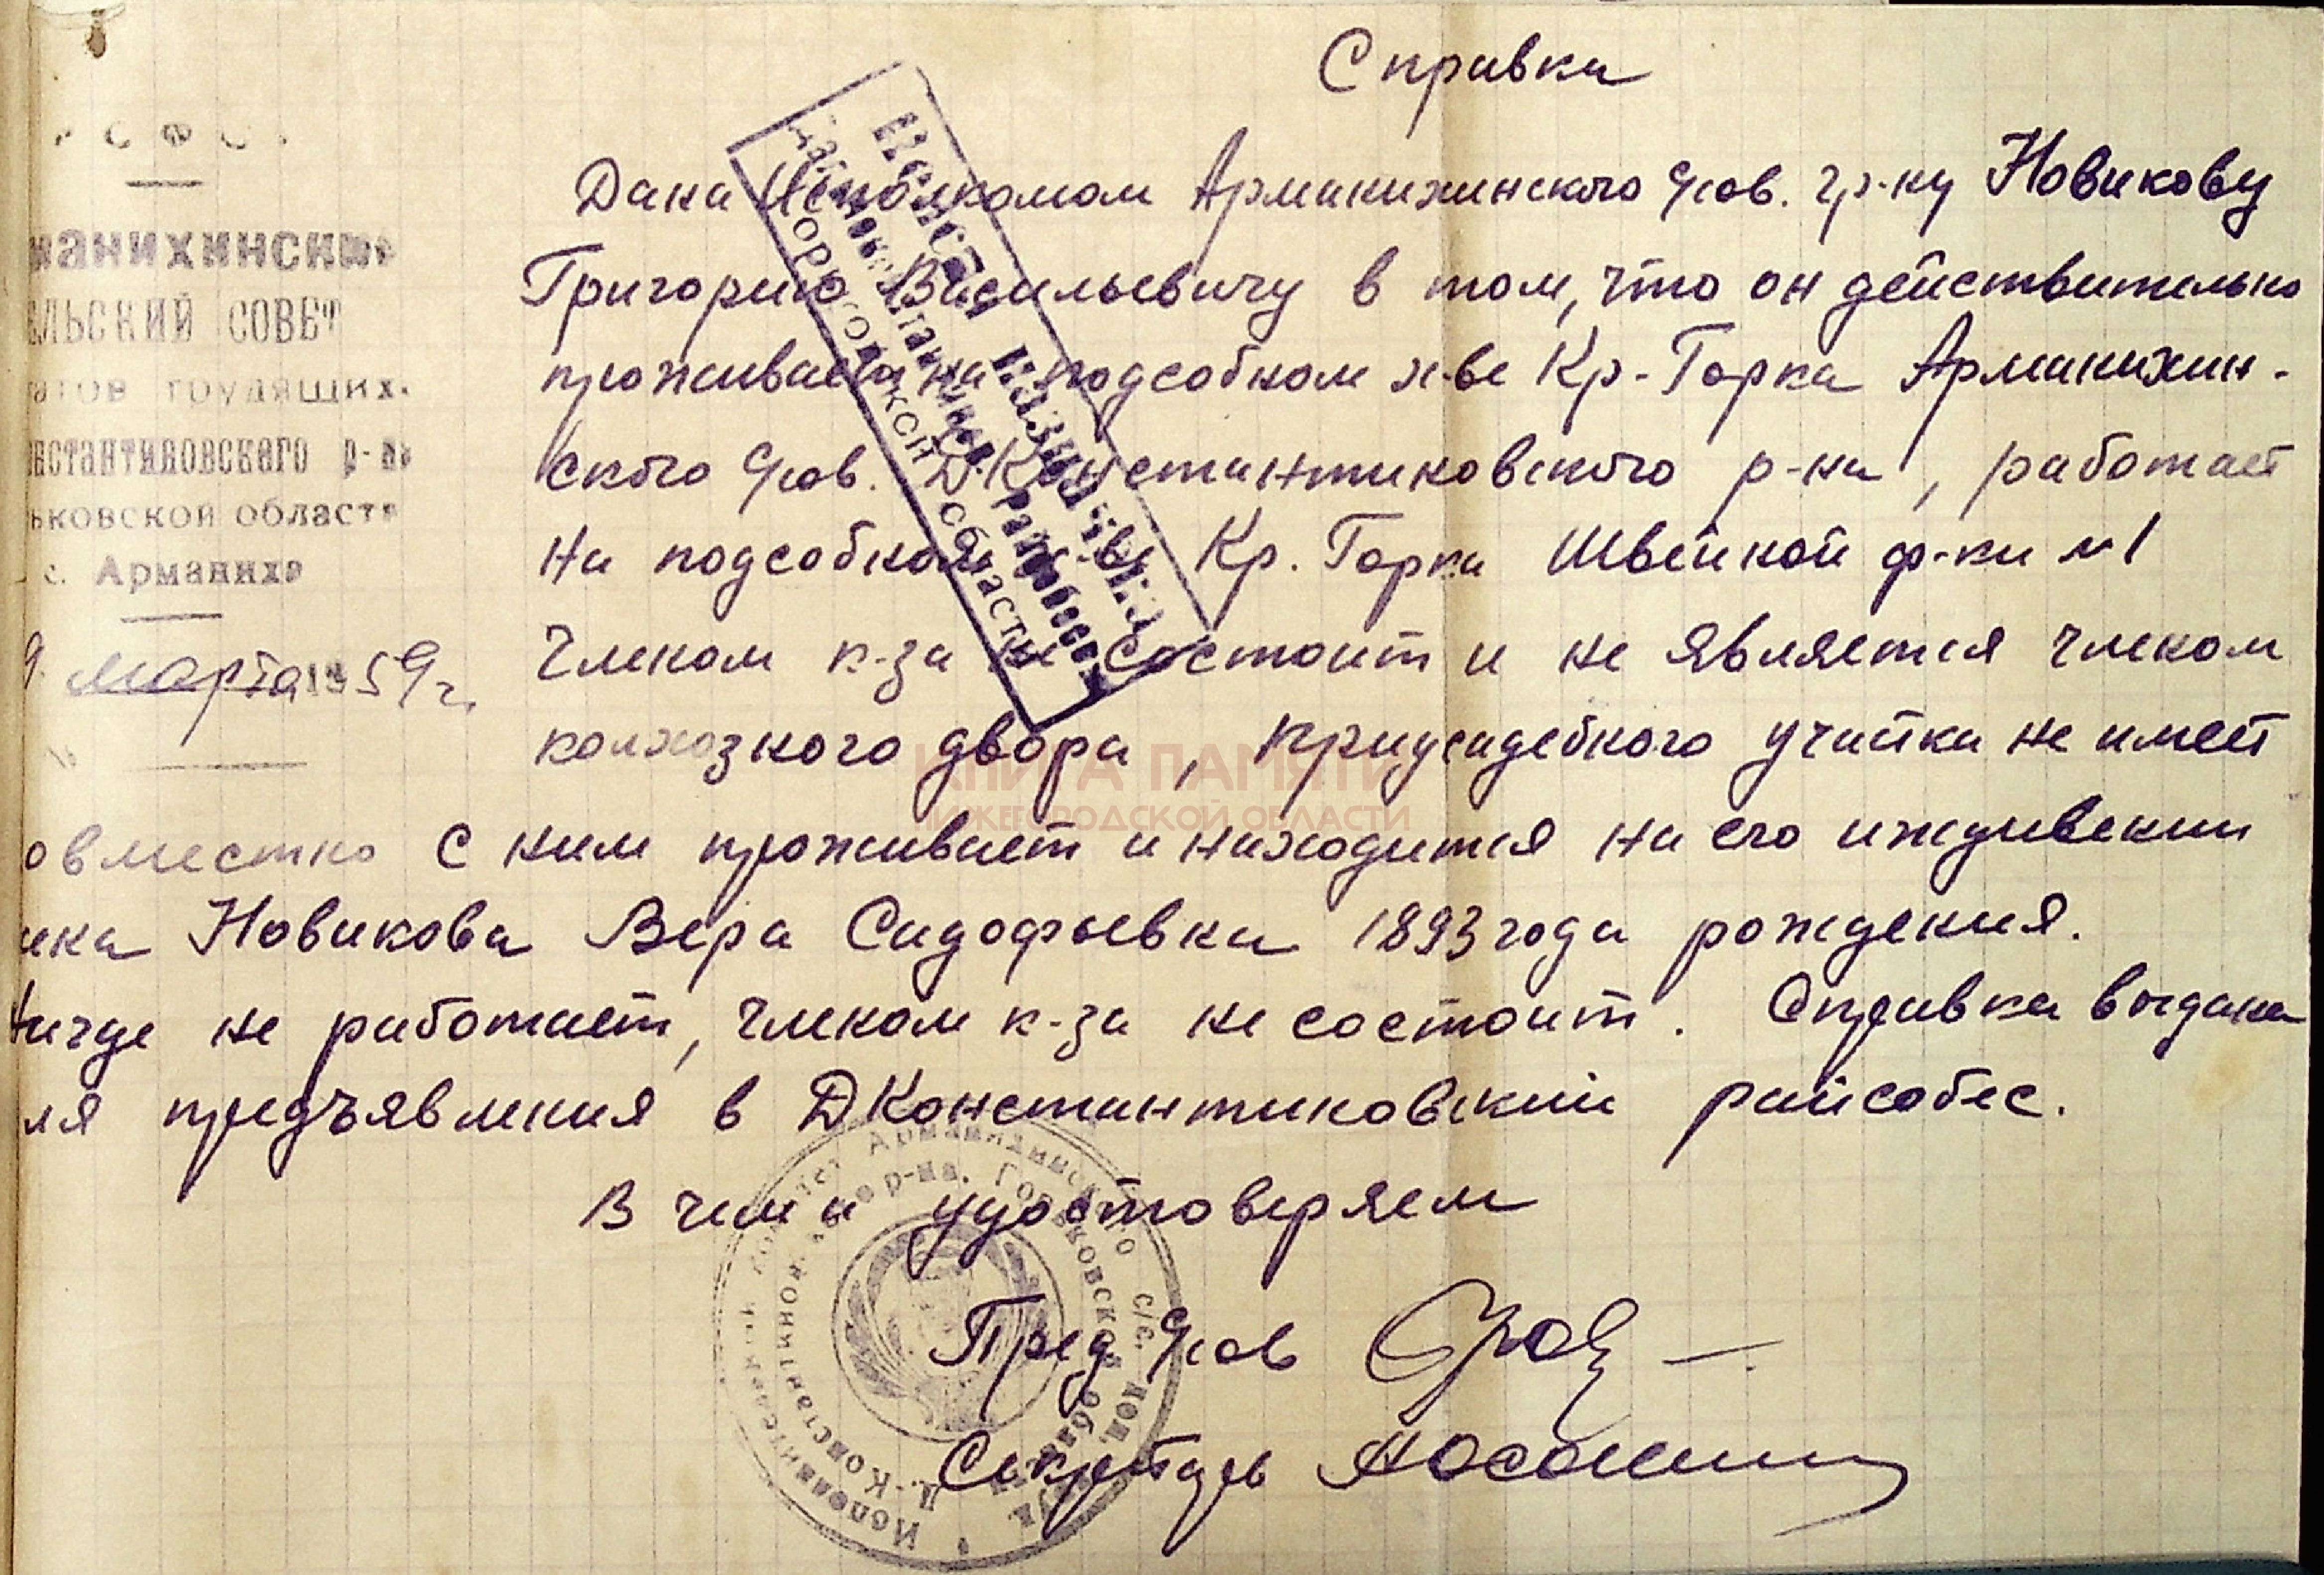 Р С Ф С
манихинский
ельский СОВЕТ
атов трудящихс
нстантиновского р-на
ьковской области
с. Арманиха
9 марта 1959 г.
Справка
Дана Исполкомом Арманихинского с/сов. гр-ну Новикову
Григорию Васильевичу в том, что он действительно
проживает на подсобном х-ве Кр-Горка Арманихин-
ского с/сов. Д.Константиновского р-на, работает
на подсобном х-ве Кр. Горка Швейной ф-ки №1
Членом к-за не состоит и не является членом
колхозного двора, придусадебного участка не имеет
овместно с ним проживает и находится на его иждивении
Новикова Вера Сидофьевна 1893 года рождения.
Нигде не работает, членом к-за не состоит. Справка выдана
ля предъявления в ДКонстантиновский райсобес.
В чем и удостоверяем
Пред с/сов
Секретарь
Пенсия назначена
Дальнеконстантиновский райсобес
Горьковской области
Исполнительный комитет Арманихинского с/с. деп. труд.
Д.-Константиновского р-на, Горьковской области
КНИГА ПАМЯТИ
НИЖЕГОРОДСКОЙ ОБЛАСТИ